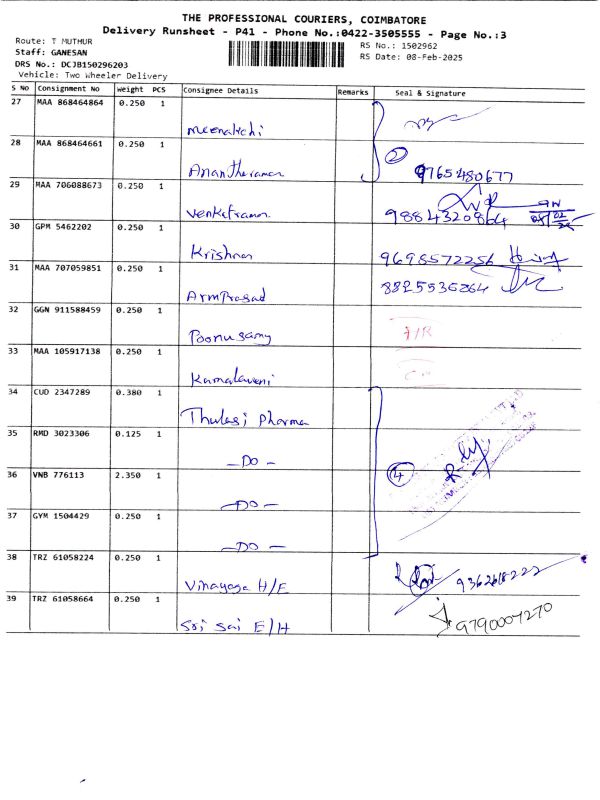 THE PROFESSIONAL COURIERS, COIMBATORE
Delivery Runsheet - P41 - Phone No.:0422-3505555 - Page No.:3
Route: T MUTHUR
RS No.: 1502962
Staff: GANESAN
RS Date: 08-Feb-2025
DRS No.: DCJB150296203
Vehicle: Two Wheeler Delivery
S No Consignment No Weight PCS Consignee Details Remarks Seal & Signature
27 MAA 868464864 0.250 1
Meenatchi
28 MAA 868464661 0.250 1
2
Anantheraman 9765480677
29 MAA 706088673 0.250 1
Venketraman 9884320864
30 GPM 5462202 0.250 1
Krishnan 9698572256
31 MAA 707059851 0.250 1
8825536264
ArmPrasad
32 GGN 911588459 0.250 1
Poonusamy A/R
33 MAA 105917138 0.250 1
Kamalaveni
34 CUD 2347289 0.380 1
Thulasi Pharma
35 RMD 3023306 0.125 1
-DO-
36 VNB 776113 2.350 1
4
-DO-
37 GYM 1504429 0.250 1
-DO-
38 TRZ 61058224 0.250 1
Vinayaga H/E 9362618222
39 TRZ 61058664 0.250 1
Sri Sai E/H 9790007270